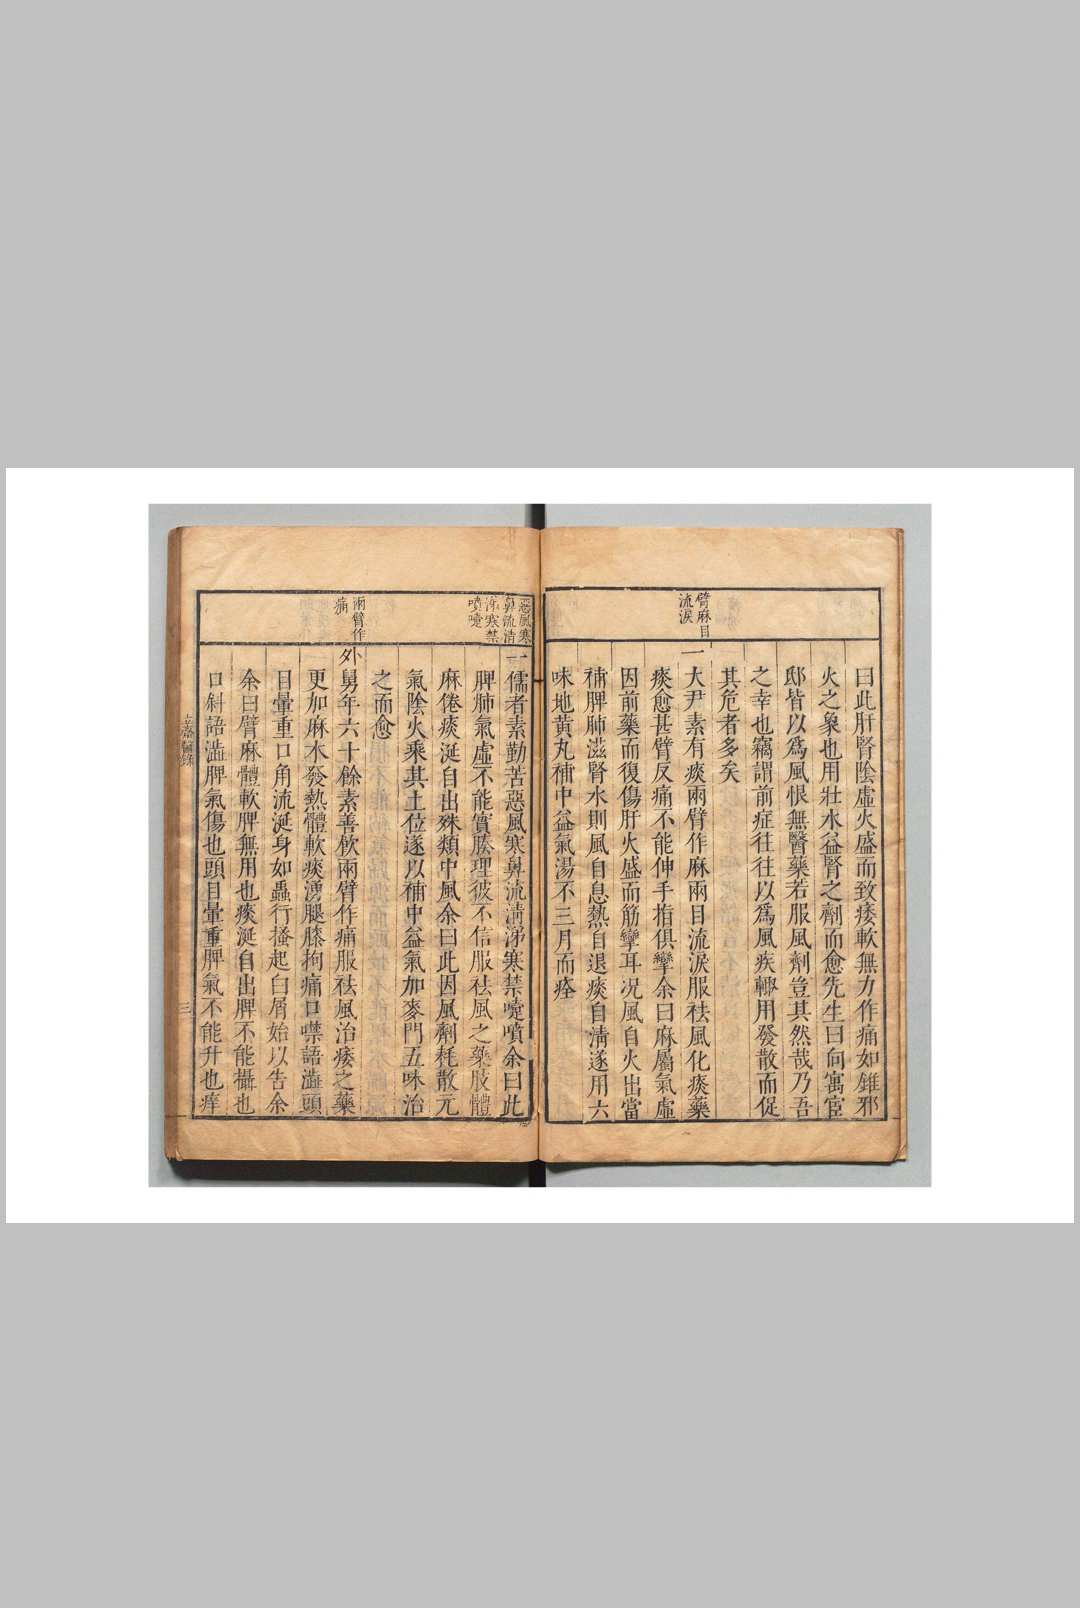 曰此肝腎陰虛火盛而致痿軟無力作痛如錐邪
火之象也用壯水益腎之劑而愈先生曰向寓宦
邸皆以爲風恨無醫藥若服風劑豈其然哉乃吾
之幸也竊謂前症往往以爲風疾輙用發散而促
其危者多矣
臂麻目
流淚
一大尹素有痰兩臂作麻兩目流淚服祛風化痰藥
痰愈甚臂反痛不能伸手指俱攣余曰麻屬氣虛
因前藥而復傷肝火盛而筋攣耳况風自火出當
補脾肺滋腎水則風自息熱自退痰自淸遂用六
味地黃丸補中益氣湯不三月而痊
惡風寒
鼻流清
涕寒禁
噴嚏
一儒者素勤苦惡風寒鼻流淸涕寒禁嚏噴余曰此
脾肺氣虛不能實腠理彼不信服祛風之藥肢體
麻倦痰涎自出殊類中風余曰此因風劑耗散元
氣陰火乘其土位遂以補中益氣加麥門五味治
之而愈
兩臂作
痛
外舅年六十餘素善飮兩臂作痛服祛風治痿之藥
更加麻木發熱體軟痰湧腿膝拘痛口噤語澁頭
目暈重口角流涎身如蟲行搔起白屑始以告余
余曰臂麻體軟脾無用也痰涎自出脾不能攝也
口斜語澁脾氣傷也頭目暈重脾氣不能升也痒
三